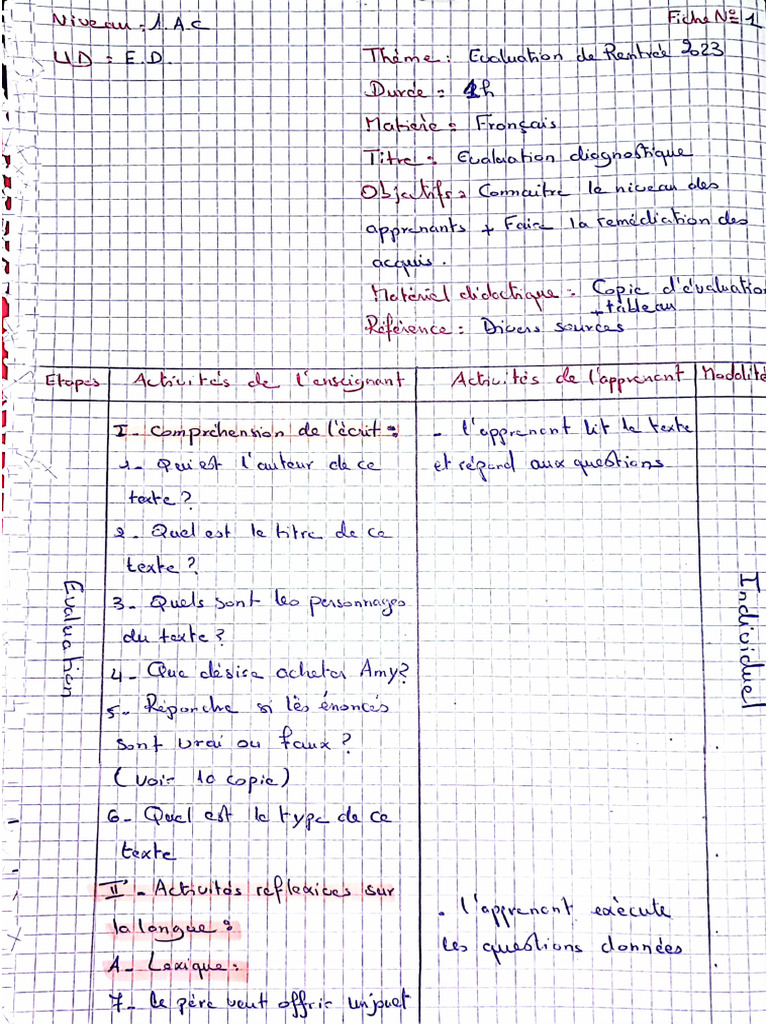 Niveau : 1.A.C
Fiche N° = 1
UD = E.D.
Thème : Evaluation de Rentrée 2023
Durée = 1h
Matière = Français
Titre = Evaluation diagnostique
Objectifs = Connaitre le niveau des
apprenants + Faire la remédiation des
acquis.
Matériel didactique = Copie d'évaluation
+ tableau
Référence = Divers sources
Etapes | Activités de l'enseignant | Activités de l'apprenant | Modalité
I - Compréhension de l'écrit :
1 - Qui est l'auteur de ce
texte ?
2 - Quel est le titre de ce
texte ?
3 - Quels sont les personnages
du texte ?
4 - Que désire acheter Amy ?
5 - Réponche si lès énoncés
sont vrai ou faux ?
(voir la copie)
6 - Quel est le type de ce
texte
II - Activités réflexices sur
la langue :
A - Lexique :
7 - le père veut offrir un jouet
Evaluation
- l'apprenant lit le texte
et répond aux questions
- l'apprenant exècute
les questions données
Individuel